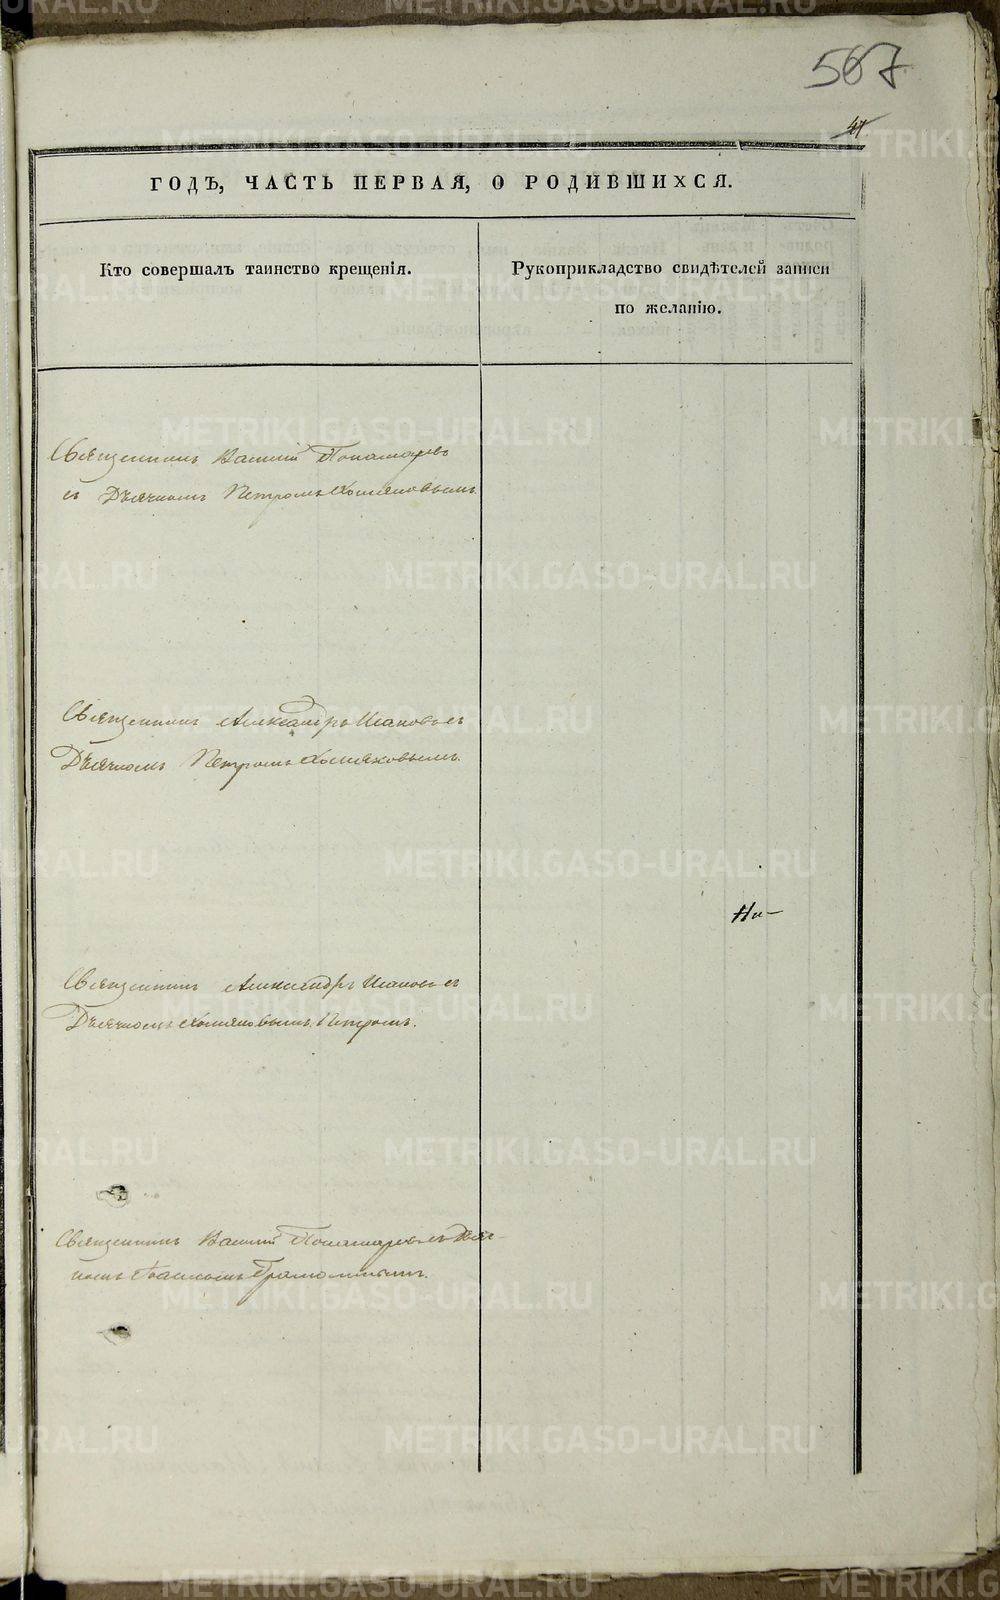 567
41.
ГОДЪ, ЧАСТЬ ПЕРВАЯ, О РОДИВШИХСЯ.
Кто совершалъ таинство крещенія.
Рукоприкладство свидѣтелей записи
по желанію.
Священникъ Василій Пономаревъ
съ Дьячкомъ Петромъ Хомяковымъ
Священникъ Александръ Исаковъ съ
Дьячкомъ Петромъ Хомяковымъ.
Священникъ Александръ Исаковъ съ
Дьячкомъ Хомяковымъ Петромъ.
Священникъ Василій Пономаревъ съ Дьяч-
METRIKI.GASO-URAL.RU